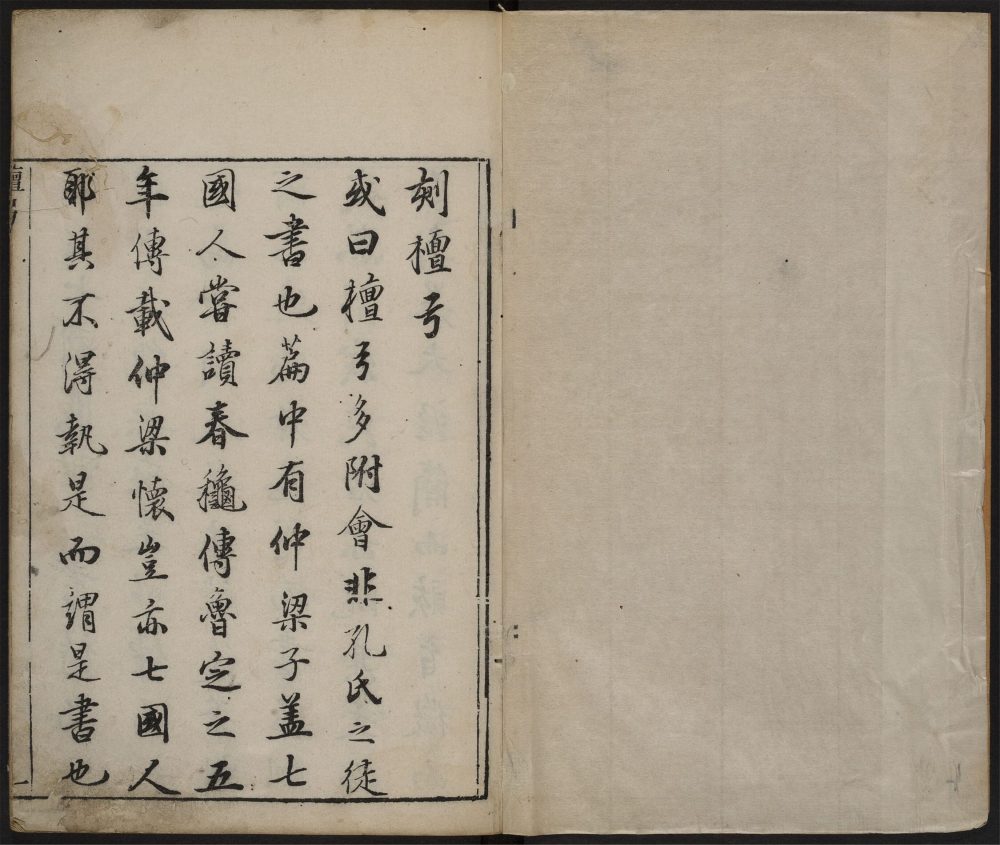 刻檀弓
或曰檀弓多附會非孔氏之徒
之書也篇中有仲梁子盖七
國人嘗讀春穐傳魯定之五
年傳載仲梁懷豈亦七國人
耶其不得執是而謂是書也
檀弓
一